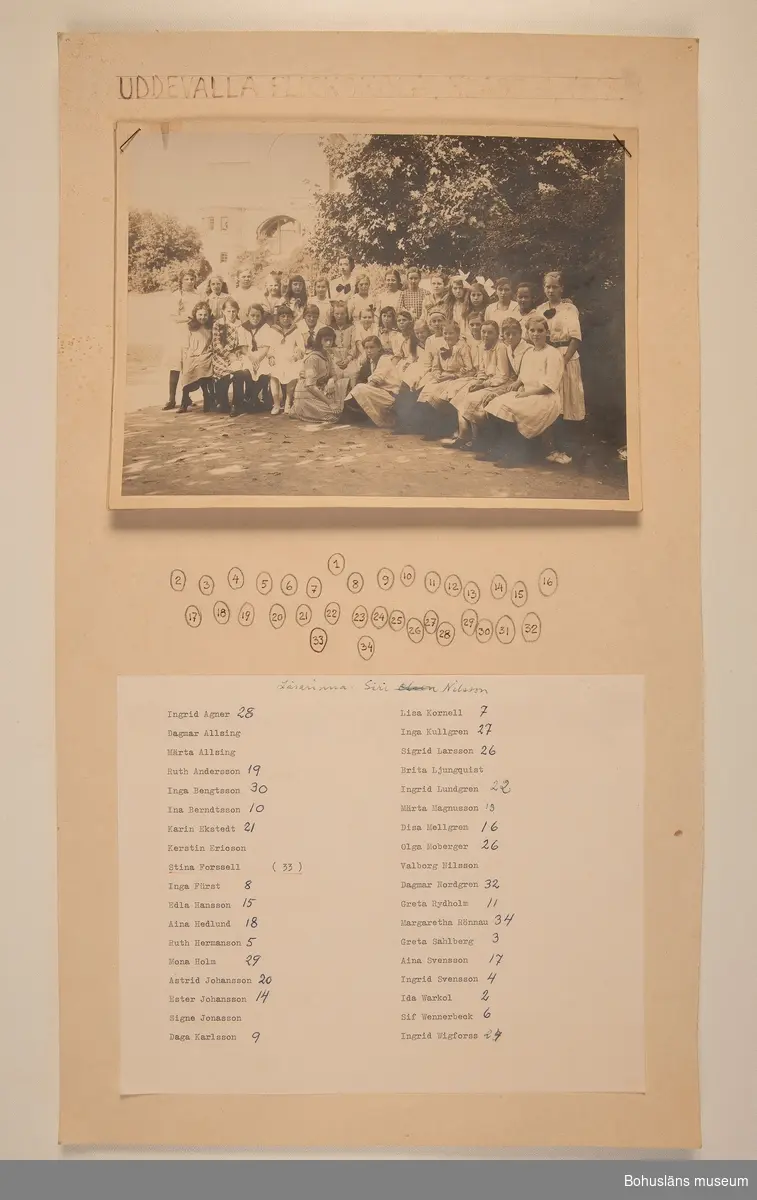 UDDEVALLA
1
2 3 4 5 6 7 8 9 10 11 12 13 14 15 16
17 18 19 20 21 22 23 24 25 26 27 28 29 30 31 32
33 34
Lärarinna Siri Nilsson
Ingrid Agner 28
Dagmar Allsing
Märta Allsing
Ruth Andersson 19
Inga Bengtsson 30
Ina Berndtsson 10
Karin Ekstedt 21
Kerstin Ericson
Stina Forssell (33)
Inga Fürst 8
Edla Hansson 15
Aina Hedlund 18
Ruth Hermanson 5
Mona Holm 29
Astrid Johansson 20
Ester Johansson 14
Signe Jonasson
Daga Karlsson 9
Lisa Kornell 7
Inga Kullgren 27
Sigrid Larsson 26
Brita Ljungquist
Ingrid Lundgren 22
Märta Magnusson 13
Disa Mellgren 16
Olga Moberger 26
Valborg Nilsson
Dagmar Nordgren 32
Greta Rydholm 11
Margaretha Rönnau 34
Greta Sahlberg 3
Aina Svensson 17
Ingrid Svensson 4
Ida Warkol 2
Sif Wennerbeck 6
Ingrid Wigforss 24
Bohusläns museum